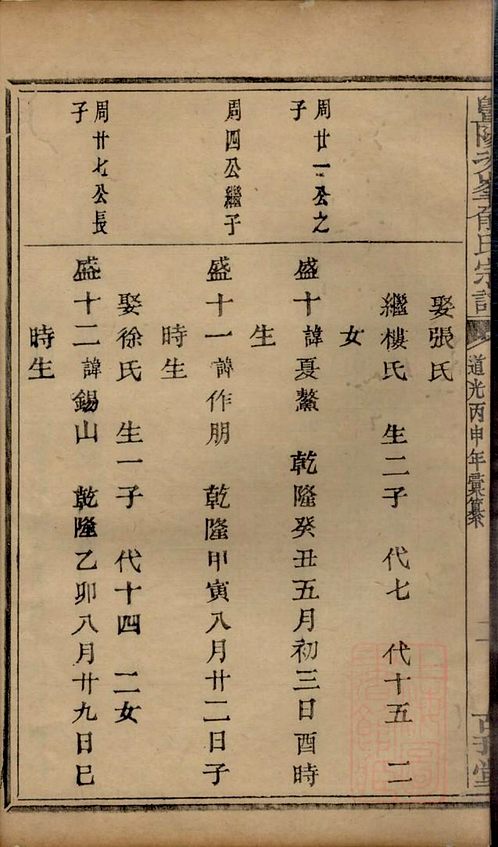 暨陽孝義俞氏宗譜
道光丙申年彙纂
娶張氏
繼樓氏 生二子 代七 代十五 二
女
周廿一公之
子
盛十諱夏鰲 乾隆癸丑五月初三日酉時
生
周四公繼子
盛十一諱作朋 乾隆甲寅八月廿二日子
時生
娶徐氏 生一子 代十四 二女
周廿七公長
子
盛十二諱錫山 乾隆乙卯八月廿九日巳
時生